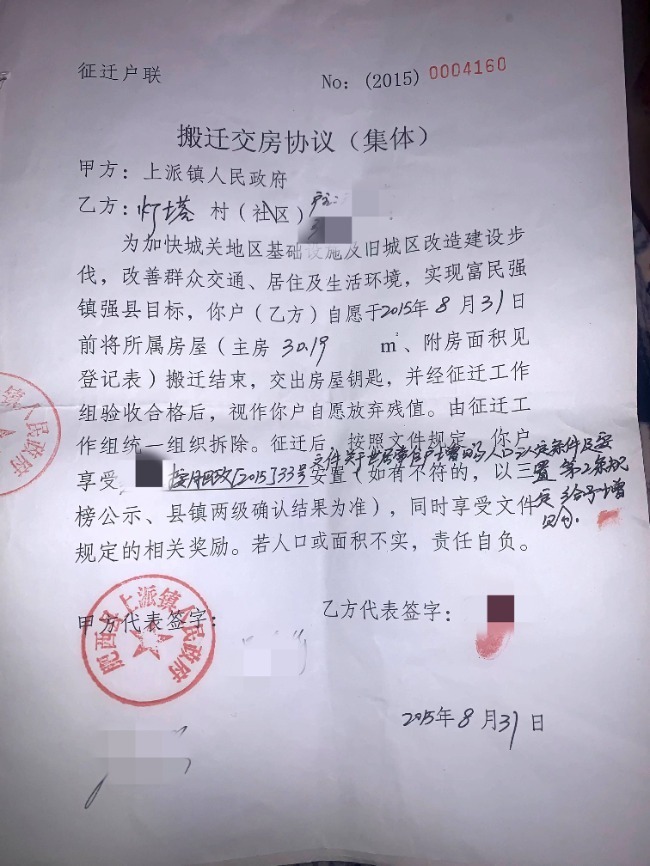 征迁户联
No: (2015) 0004160
搬迁交房协议（集体）
甲方：上派镇人民政府
乙方：灯塔 村（社区）户主:
为加快城关地区基础设施及旧城区改造建设步
伐，改善群众交通、居住及生活环境，实现富民强
镇强县目标，你户（乙方）自愿于2015年 8 月 31日
前将所属房屋（主房 30.19 ㎡、附房面积见
登记表）搬迁结束，交出房屋钥匙，并经征迁工作
组验收合格后，视作你户自愿放弃残值。由征迁工
作组统一组织拆除。征迁后，按照文件规定，你户
享受 按肥政[2015]33号文件关于 人口认定条件及安置第2条规定给予增
安置（如有不符的，以三
榜公示、县镇两级确认结果为准），同时享受文件
规定的相关奖励。若人口或面积不实，责任自负。
甲方代表签字：
乙方代表签字：
肥西县上派镇人民政府
2015年 8 月 31 日
镇人民政府